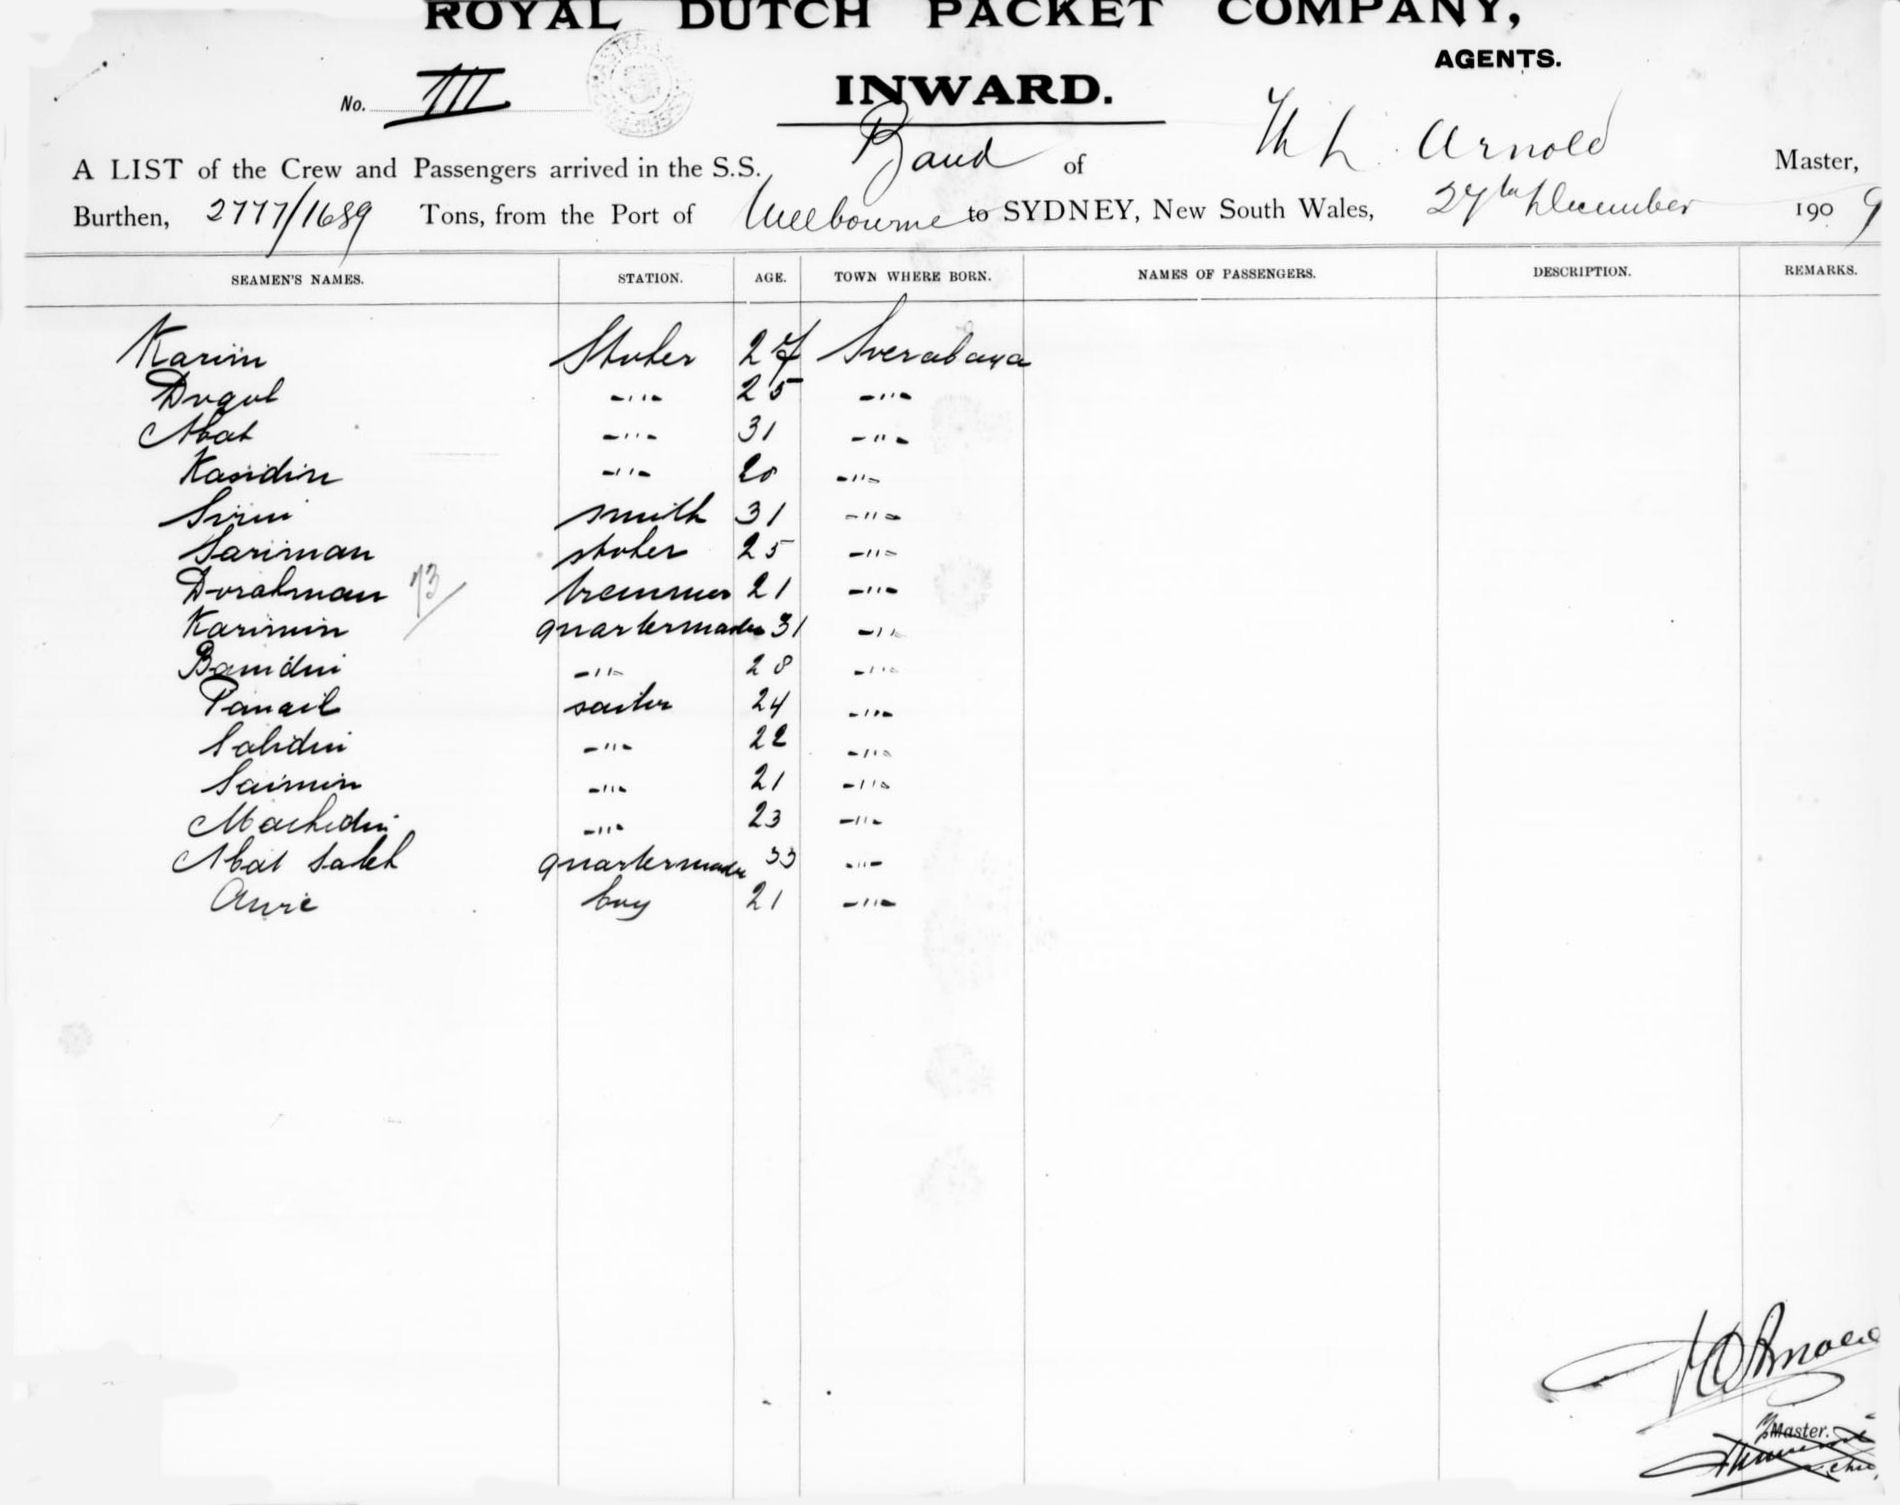 ROYAL DUTCH PACKET COMPANY,
AGENTS.
No. III
INWARD.
A LIST of the Crew and Passengers arrived in the S.S. Baud of Th L. Arnold Master,
Burthen, 2777/1689 Tons, from the Port of Melbourne to SYDNEY, New South Wales, 27th December 1909
SEAMEN'S NAMES. STATION. AGE. TOWN WHERE BORN. NAMES OF PASSENGERS. DESCRIPTION. REMARKS.
Karim Stoker 27 Soerabaya
Dogol -"- 25 -"-
Abat -"- 31 -"-
Kasidin -"- 20 -"-
Sirin smith 31 -"-
Sariman stoker 25 -"-
Dorahman 73/ tremmer 21 -"-
Karimin quartermaster 31 -"-
Bamidin -"- 28 -"-
Panail sailor 24 -"-
Salidin -"- 22 -"-
Saimin -"- 21 -"-
Machidin -"- 23 -"-
Abat Saleh quartermaster 33 -"-
Anrie boy 21 -"-
Arnold
Master.